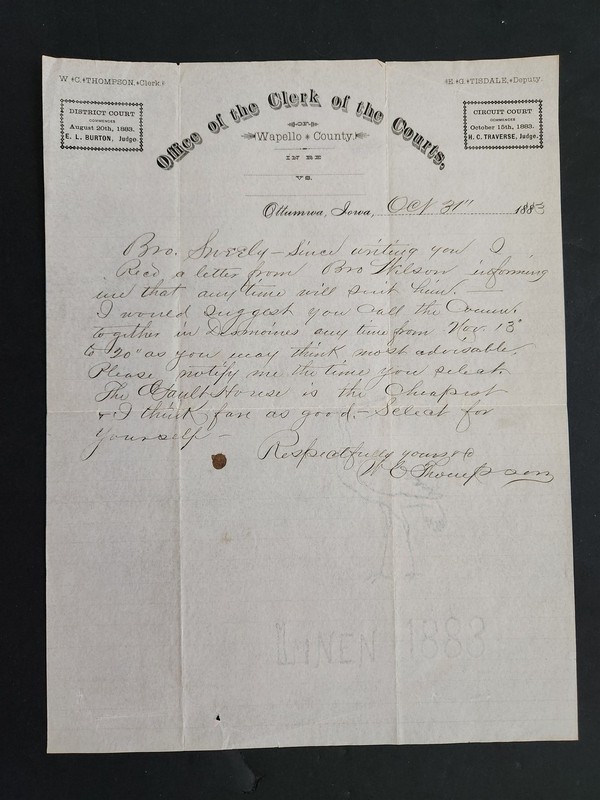 W. C. THOMPSON, Clerk.
E. G. TISDALE, Deputy.
DISTRICT COURT
COMMENCES
August 20th, 1883.
E. L. BURTON, Judge.
Office of the Clerk of the Courts,
OF
Wapello County.
CIRCUIT COURT
COMMENCES
October 15th, 1883.
H. C. TRAVERSE, Judge.
IN RE
VS.
Ottumwa, Iowa, Oct 31" 1883
Bro. - Since writing you I
Recd a letter from Bro Wilson informing
me that any time will suit him. -
I would suggest you call the
together in Desmoines any time from Nov. 13"
to 20" as you may think most advisable.
Please notify me the time you select
The House is the Cheapest
& I think fare as good. - Select for
yourself -
Respectfully yours &c
W C Thompson
LINEN 1883